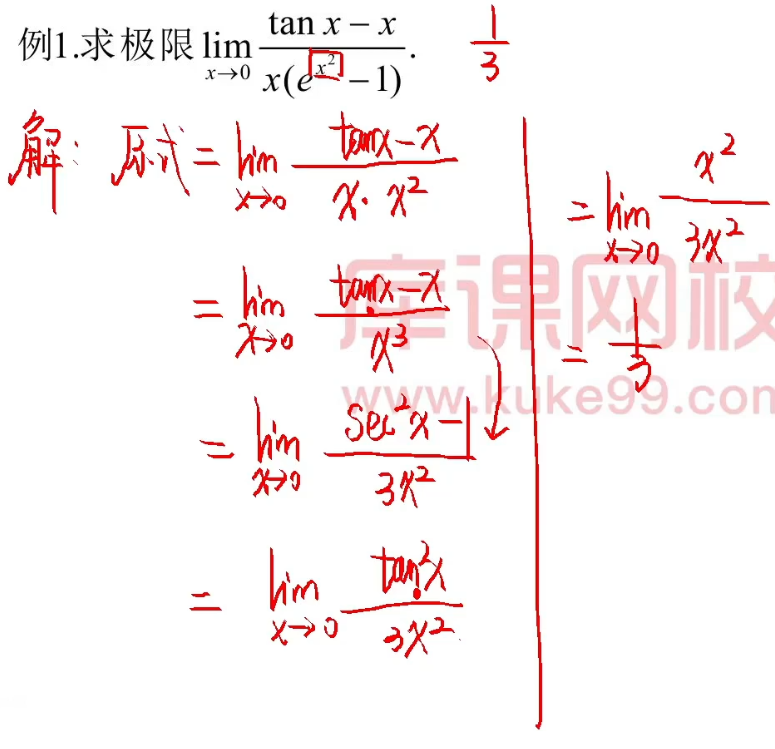 例1.求极限 lim x→0 (tan x − x)/(x(e^{x^2} − 1)). 1/3
解: 原式 = lim x→0 (tanx − x)/(x · x^2)
= lim x→0 (tanx − x)/x^3
= lim x→0 (sec^2x − 1)/(3x^2)
= lim x→0 tan^2x/(3x^2)
= lim x→0 x^2/(3x^2)
= 1/3
库课网校
www.kuke99.com